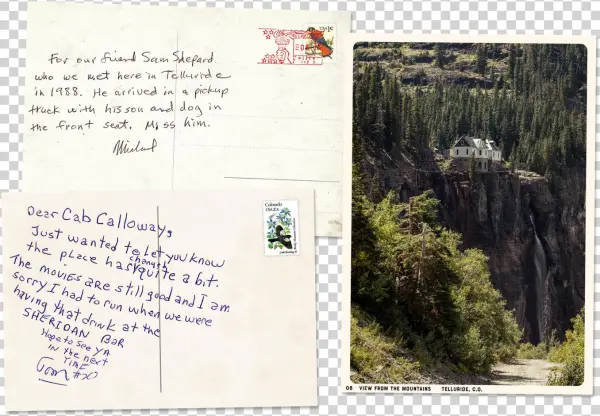 For our friend Sam Shepard
who we met here in Telluride
in 1988. He arrived in a pickup
truck with his son and dog in
the front seat. Miss him.
Michael
USA1c
Dear Cab Calloway,
Just wanted to let you know
the place has changed quite a bit.
The movies are still good and I am
sorry I had to run when we were
having that drink at the
SHERIDAN BAR
Hope to see ya
in the next
TIME
Tom
Colorado
USA 20c
06 VIEW FROM THE MOUNTAINS TELLURIDE, C.O.